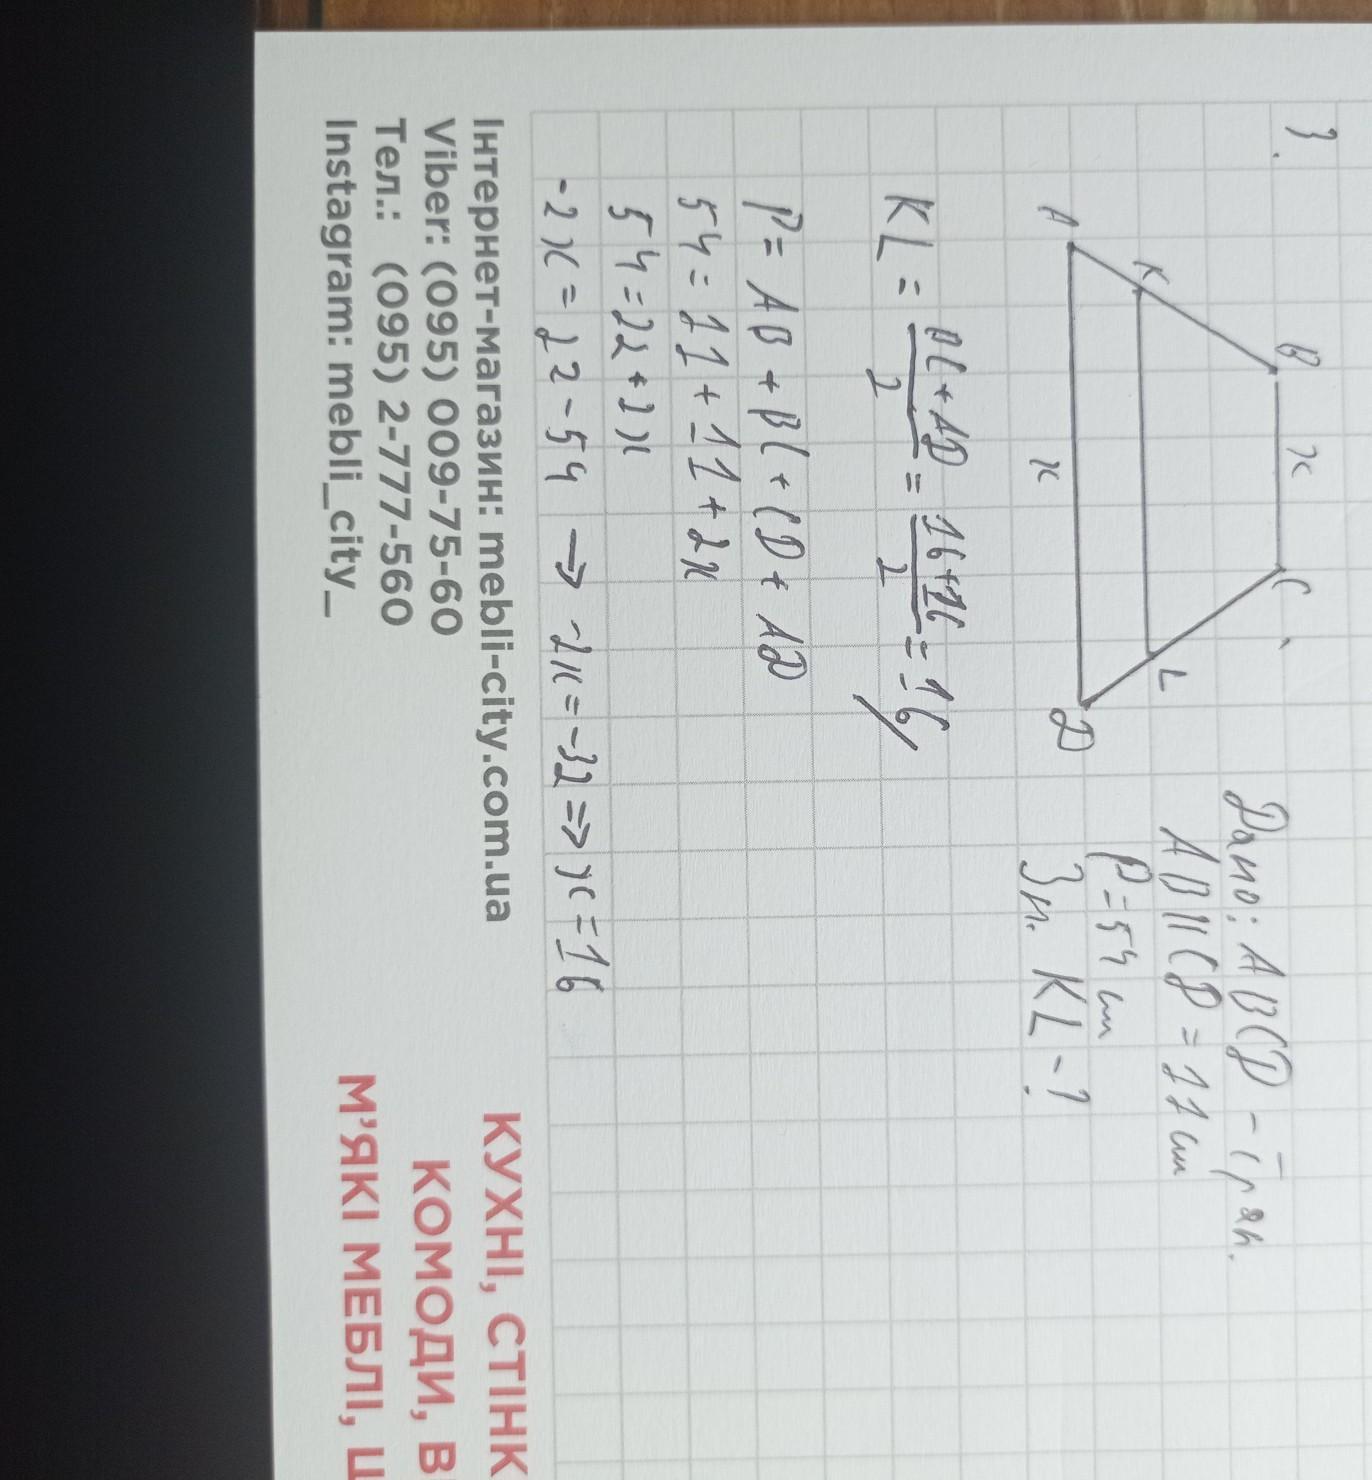 3.
A
K
B
x
C
L
D
x
Дано: ABCD - трап.
AB || CD = 11 см
P = 54 см
Зн. KL - ?
KL = BC + AD / 2 = 16 + 16 / 2 = 16
P = AB + BC + CD + AD
54 = 11 + 11 + 2x
54 = 22 + 2x
-2x = 22 - 54 → -2x = -32 => x = 16
Інтернет-магазин: mebli-city.com.ua
Viber: (095) 009-75-60
Тел.: (095) 2-777-560
Instagram: mebli_city_
КУХНІ, СТІНК
КОМОДИ, В
М'ЯКІ МЕБЛІ, Ш